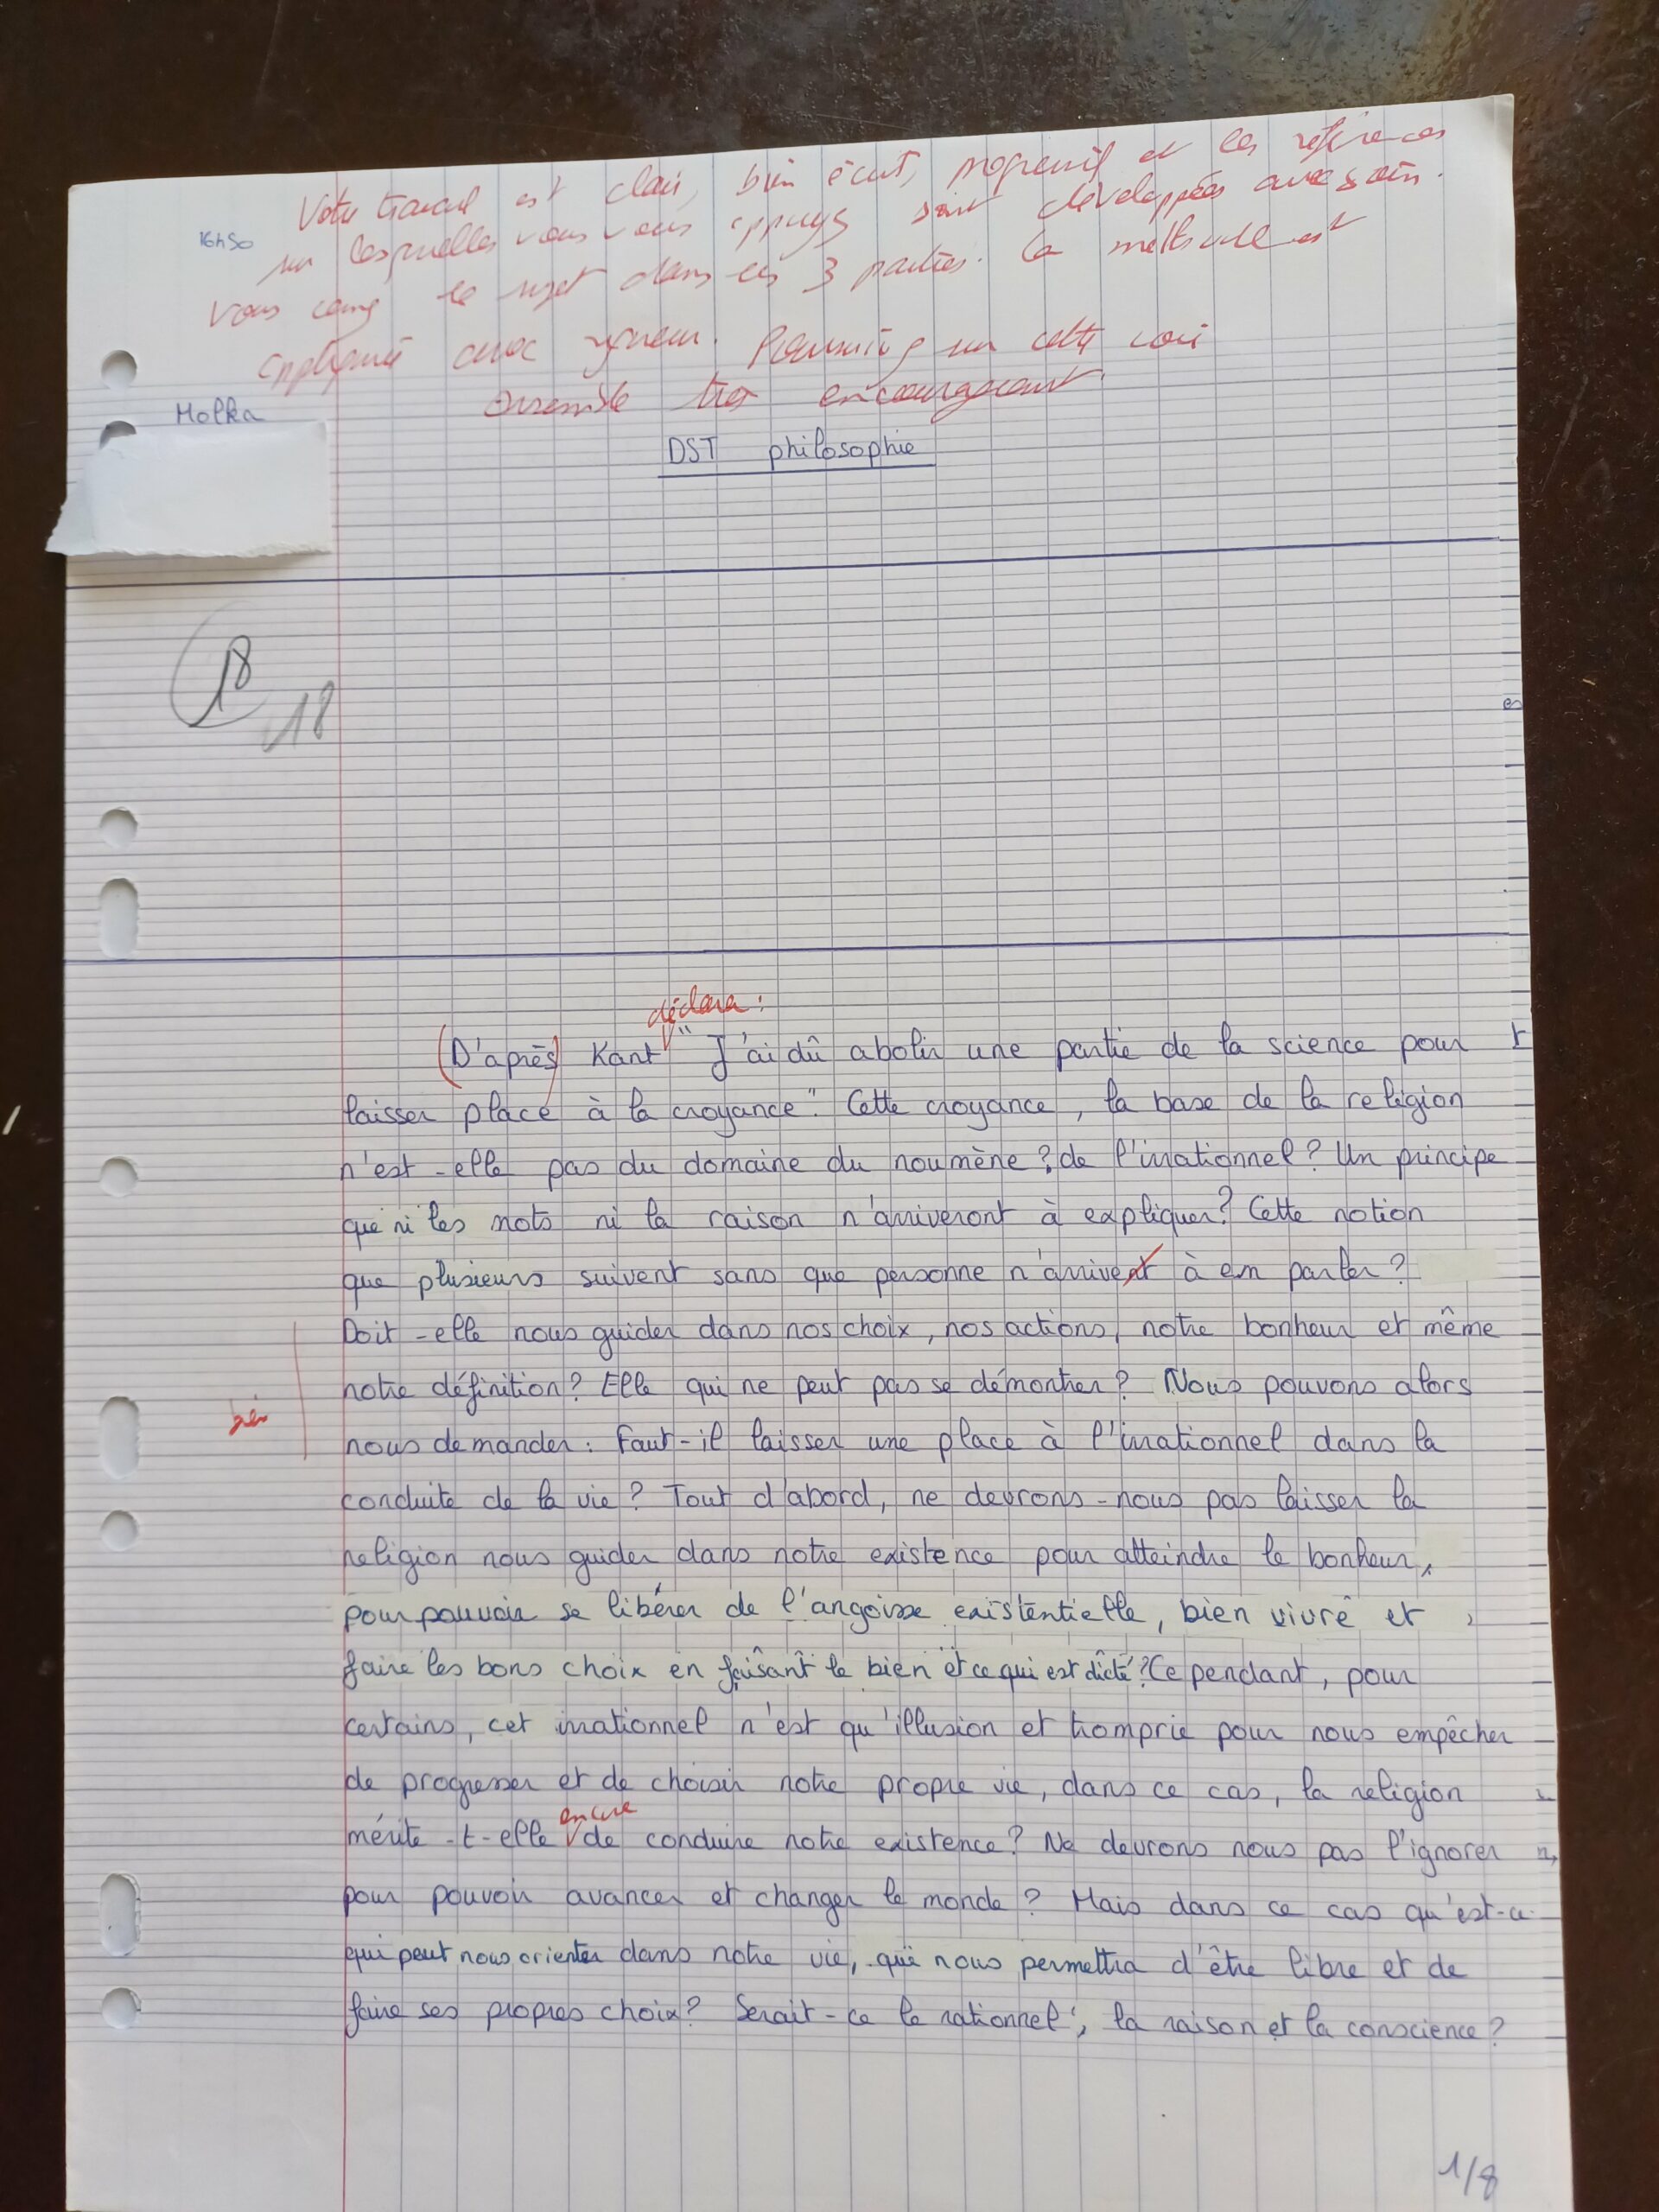 Votre travail est clair, bien écrit, progressif et les références
16h50
sur lesquelles vous vous appuyez sont développées avec soin.
vous cernez le sujet dans les 3 parties. La méthode est
appliquée avec rigueur. Poursuivez sur cette voie
Molka
ensemble très encourageant.
DST philosophie
18
18
déclara :
(D'après) Kant "J'ai dû abolir une partie de la science pour
laisser place à la croyance". Cette croyance, la base de la religion
n'est-elle pas du domaine du noumène ? de l'irrationnel ? Un principe
que ni les mots ni la raison n'arriveront à expliquer ? Cette notion
que plusieurs suivent sans que personne n'arrivent à en parler ?
Doit-elle nous guider dans nos choix, nos actions, notre bonheur et même
notre définition ? Elle qui ne peut pas se démontrer ? Nous pouvons alors
nous demander : Faut-il laisser une place à l'irationnel dans la
conduite de la vie ? Tout d'abord, ne devrons-nous pas laisser la
religion nous guider dans notre existence pour atteindre le bonheur,
pour pouvoir se libérer de l'angoisse existentielle, bien vivre et
faire les bons choix en faisant le bien et ce qui est dicté ? Cependant, pour
certains, cet irrationnel n'est qu'illusion et tromprie pour nous empêcher
de progresser et de choisir notre propre vie, dans ce cas, la religion
encore
mérite-t-elle de conduire notre existence ? Ne devrons nous pas l'ignorer
pour pouvoir avancer et changer le monde ? Mais dans ce cas qu'est-ce
qui peut nous orienter dans notre vie, qui nous permettra d'être libre et de
faire ses propres choix ? Serait-ce le rationnel, la raison et la conscience ?
1/8